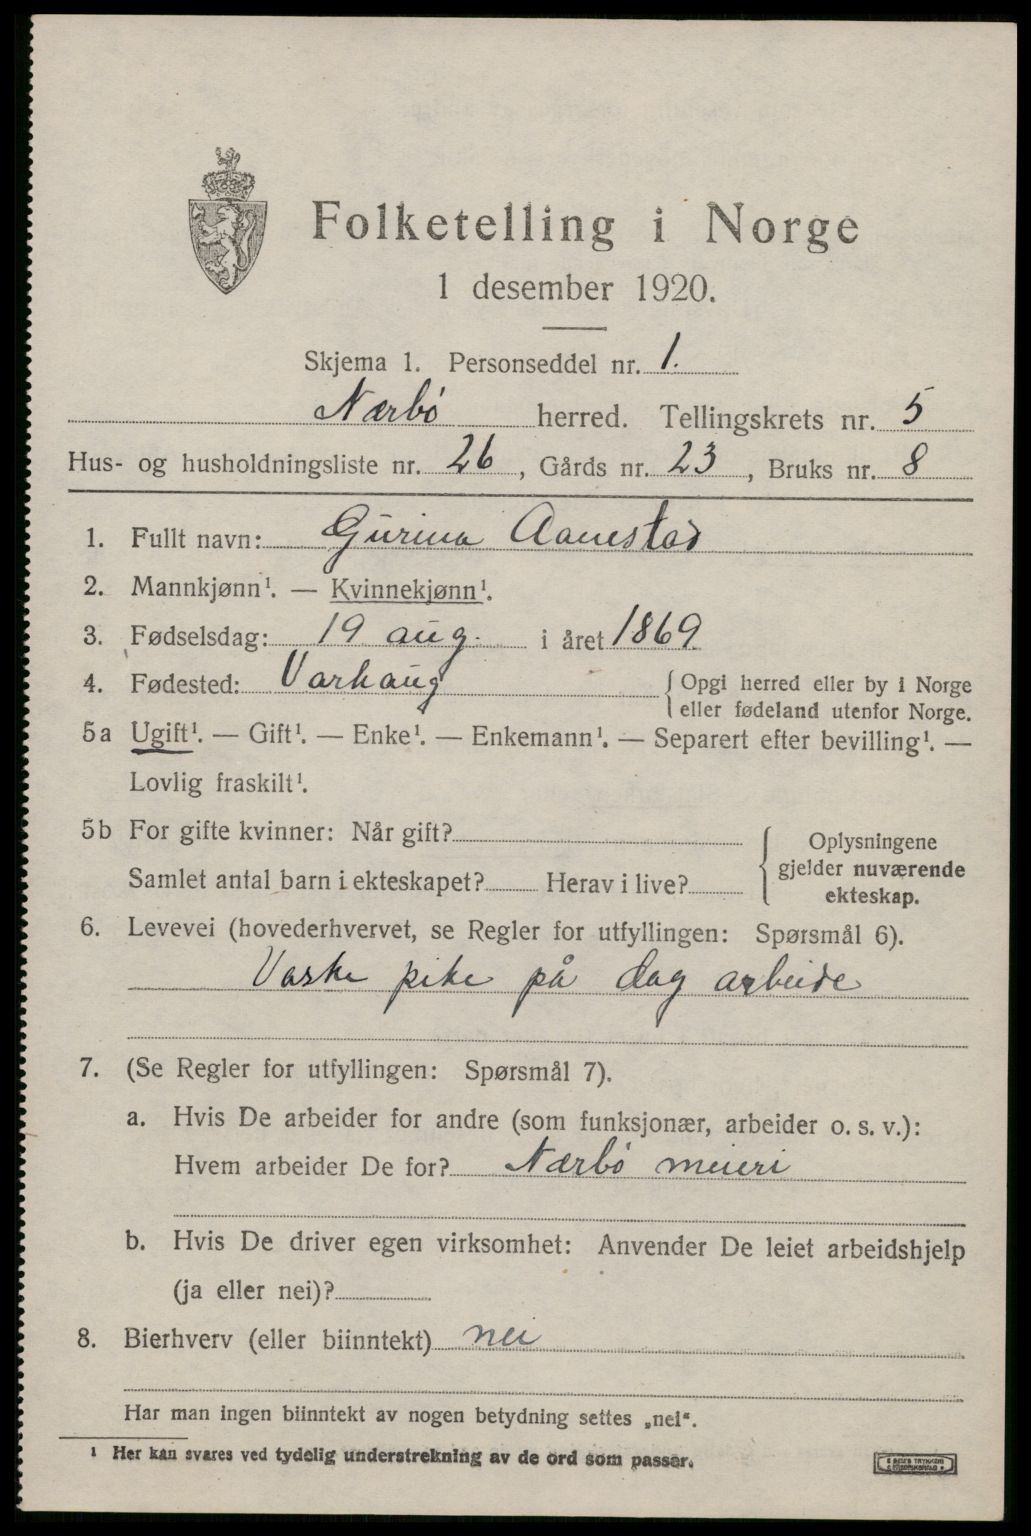 Folketelling i Norge
1 desember 1920.
Skjema 1. Personseddel nr. 1.
Nærbø herred. Tellingskrets nr. 5
Hus- og husholdningsliste nr. 26, Gårds nr. 23, Bruks nr. 8
1. Fullt navn: Gurina Aanestad
2. Mannkjønn¹. — Kvinnekjønn¹.
3. Fødselsdag: 19 aug. i året 1869
4. Fødested: Varhaug { Opgi herred eller by i Norge
eller fødeland utenfor Norge.
5a Ugift¹. — Gift¹. — Enke¹. — Enkemann¹. — Separert efter bevilling¹. —
Lovlig fraskilt¹.
5b For gifte kvinner: Når gift?
Samlet antal barn i ekteskapet? Herav i live?
{ Oplysningene
gjelder nuværende
ekteskap.
6. Levevei (hovederhvervet, se Regler for utfyllingen: Spørsmål 6).
Vaske pike på dag arbeide
7. (Se Regler for utfyllingen: Spørsmål 7).
a. Hvis De arbeider for andre (som funksjonær, arbeider o. s. v.):
Hvem arbeider De for? Nærbø meieri
b. Hvis De driver egen virksomhet: Anvender De leiet arbeidshjelp
(ja eller nei)?
8. Bierhverv (eller biinntekt) nei
Har man ingen biinntekt av nogen betydning settes „nei“.
¹ Her kan svares ved tydelig understrekning av de ord som passer.